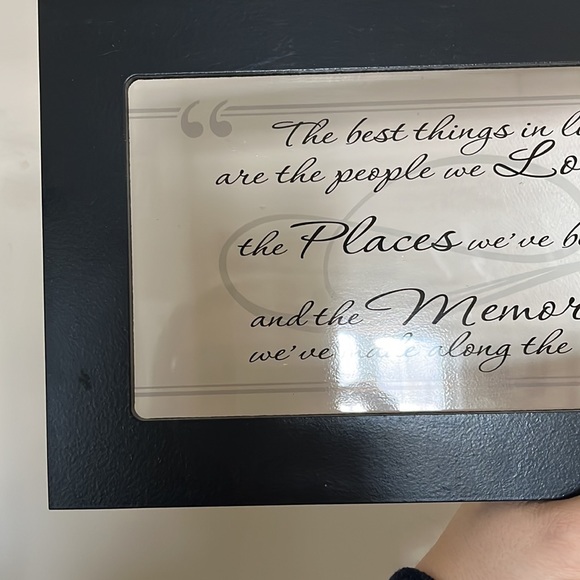 “ The best things in li
are the people we Lo
the Places we've b
and the Memor
we've made along the